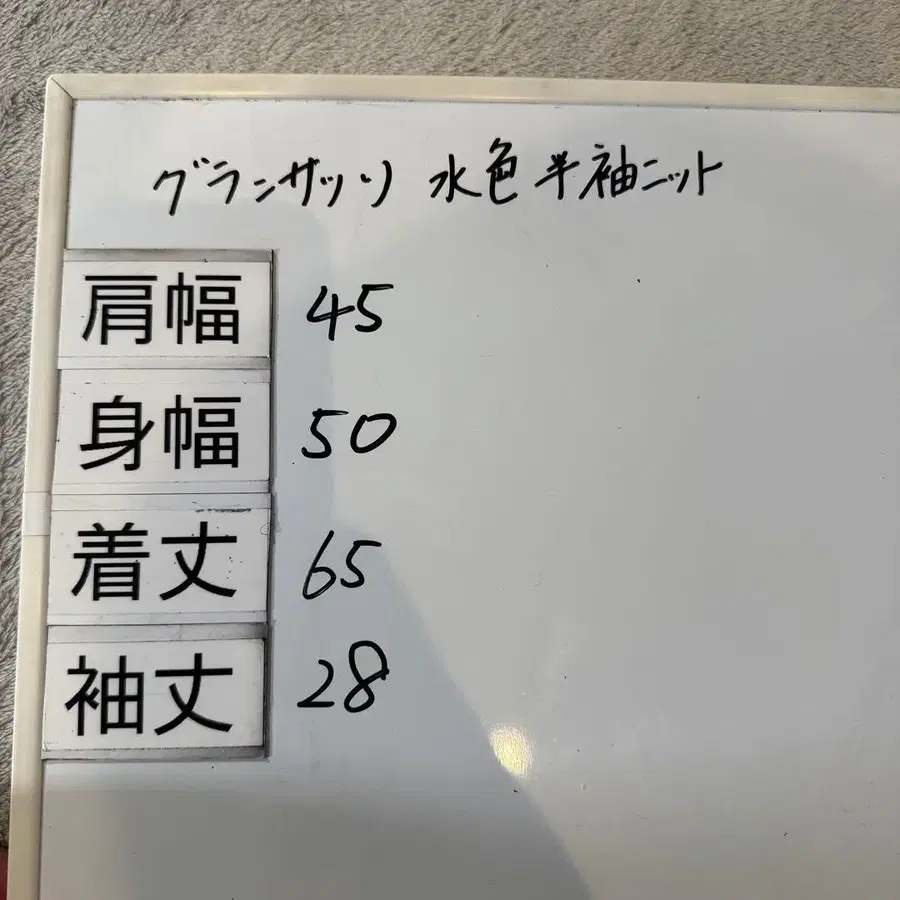 グランサッソ 水色半袖ニット
肩幅 45
身幅 50
着丈 65
袖丈 28